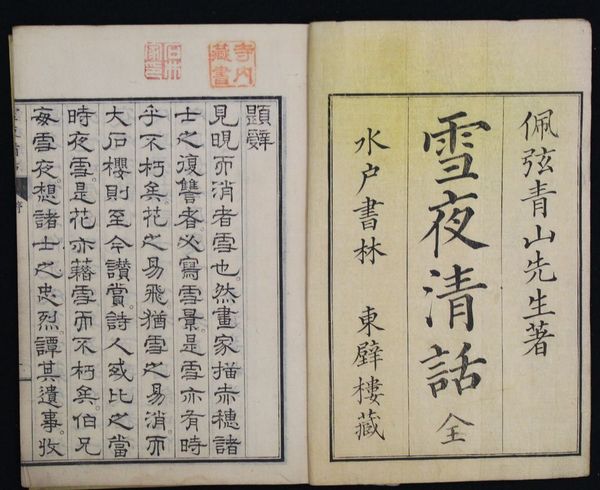 佩弦青山先生著
雪夜清話 全
水戶書林 東壁樓藏
寺内藏書
題辭
見晛而消者雪也。然畫家描赤穗諸
士之復讐者。必寫雪景。是雪亦有時
乎不朽矣。花之易飛。猶雪之易消。而
大石櫻則至今讃賞。詩人或比之當
時夜雪。是花亦藉雪而不朽矣。伯兄
每雪夜。想諸士之忠烈。譚其遺事。收